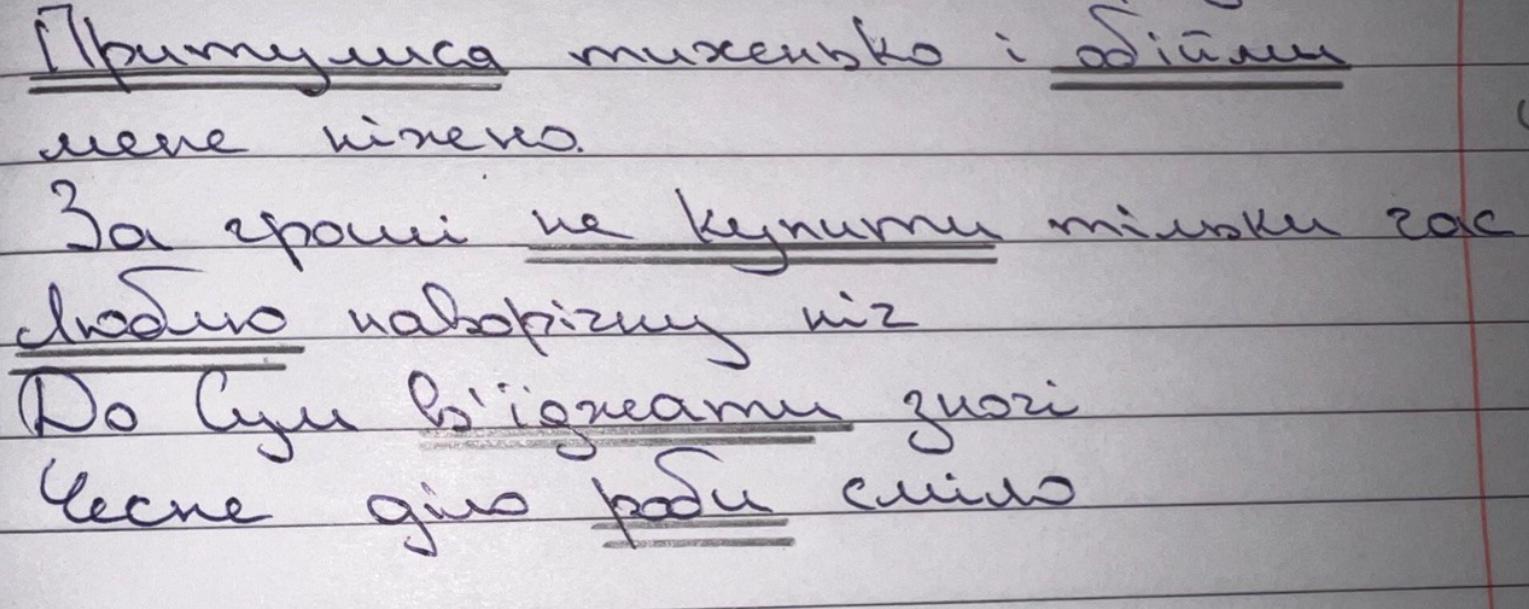 Притулися тихенько і обійми
мене ніжно.
За гроші не купити тільки час
Люблю новорічну ніч
До Сум в'їжджати вночі
Чесне діло роби сміло